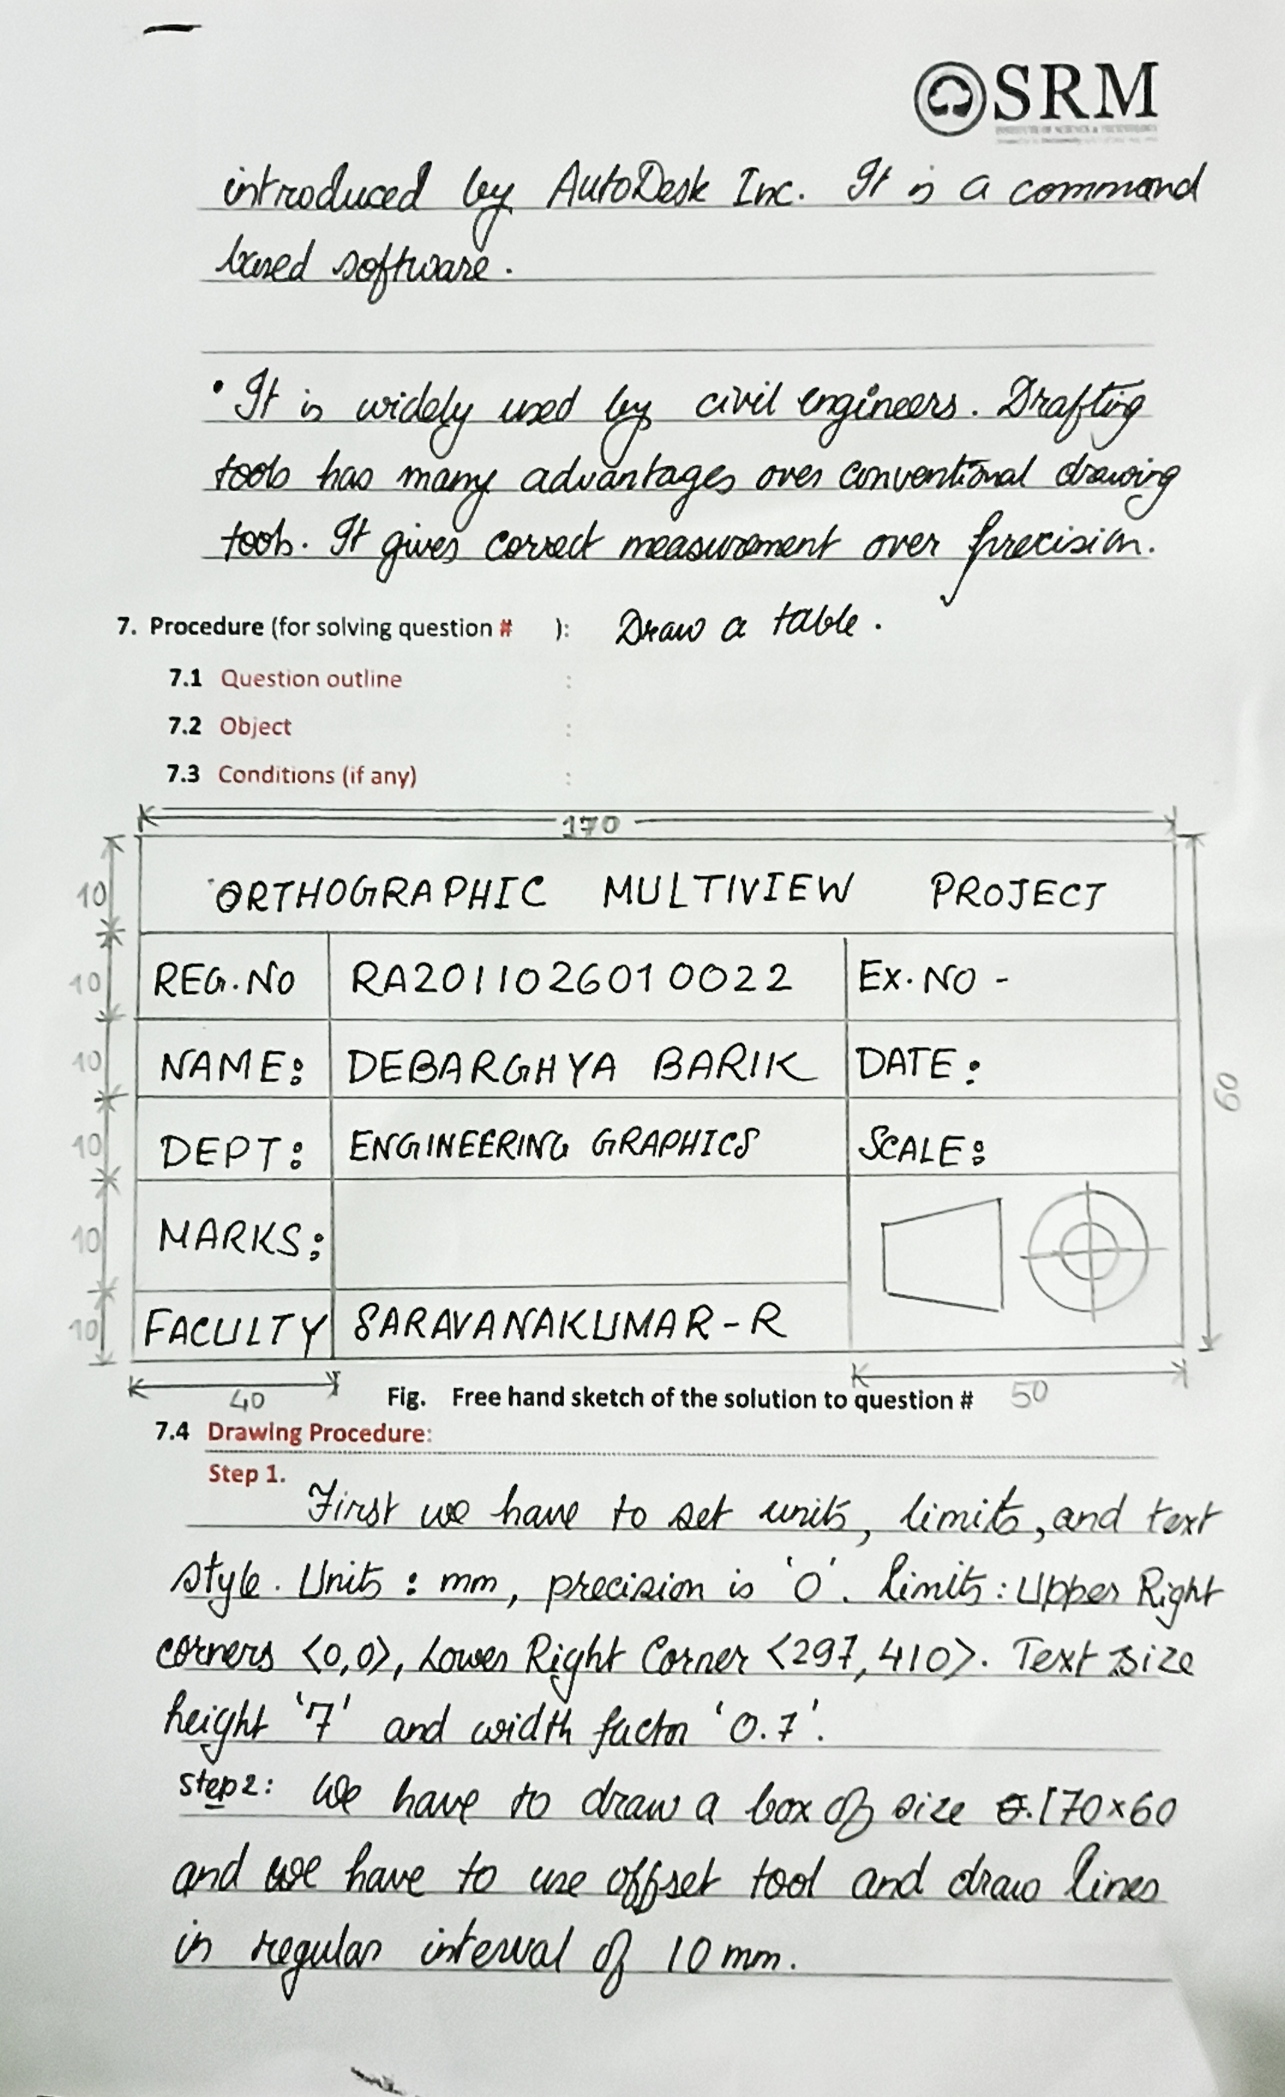 SRM
INSTITUTE OF SCIENCE & TECHNOLOGY
introduced by AutoDesk Inc. It is a command
based software.
• It is widely used by civil engineers. Drafting
tools has many advantages over conventional drawing
tools. It gives correct measurement over precision.
7. Procedure (for solving question # ): Draw a table.
7.1 Question outline :
7.2 Object :
7.3 Conditions (if any) :
170
10 ORTHOGRAPHIC MULTIVIEW PROJECT
10 REG.NO RA2011026010022 EX.NO -
10 NAME: DEBARGHYA BARIK DATE:
60
10 DEPT: ENGINEERING GRAPHICS SCALE:
10 MARKS:
10 FACULTY SARAVANAKUMAR-R
40 Fig. Free hand sketch of the solution to question # 50
7.4 Drawing Procedure:
Step 1.
First we have to set units, limits, and text
style. Units: mm, precision is '0'. Limits: Upper Right
corners <0,0>, Lower Right Corner <297,410>. Text size
height '7' and width factor '0.7'.
Step 2: We have to draw a box of size 170×60
and we have to use offset tool and draw lines
in regular interval of 10 mm.